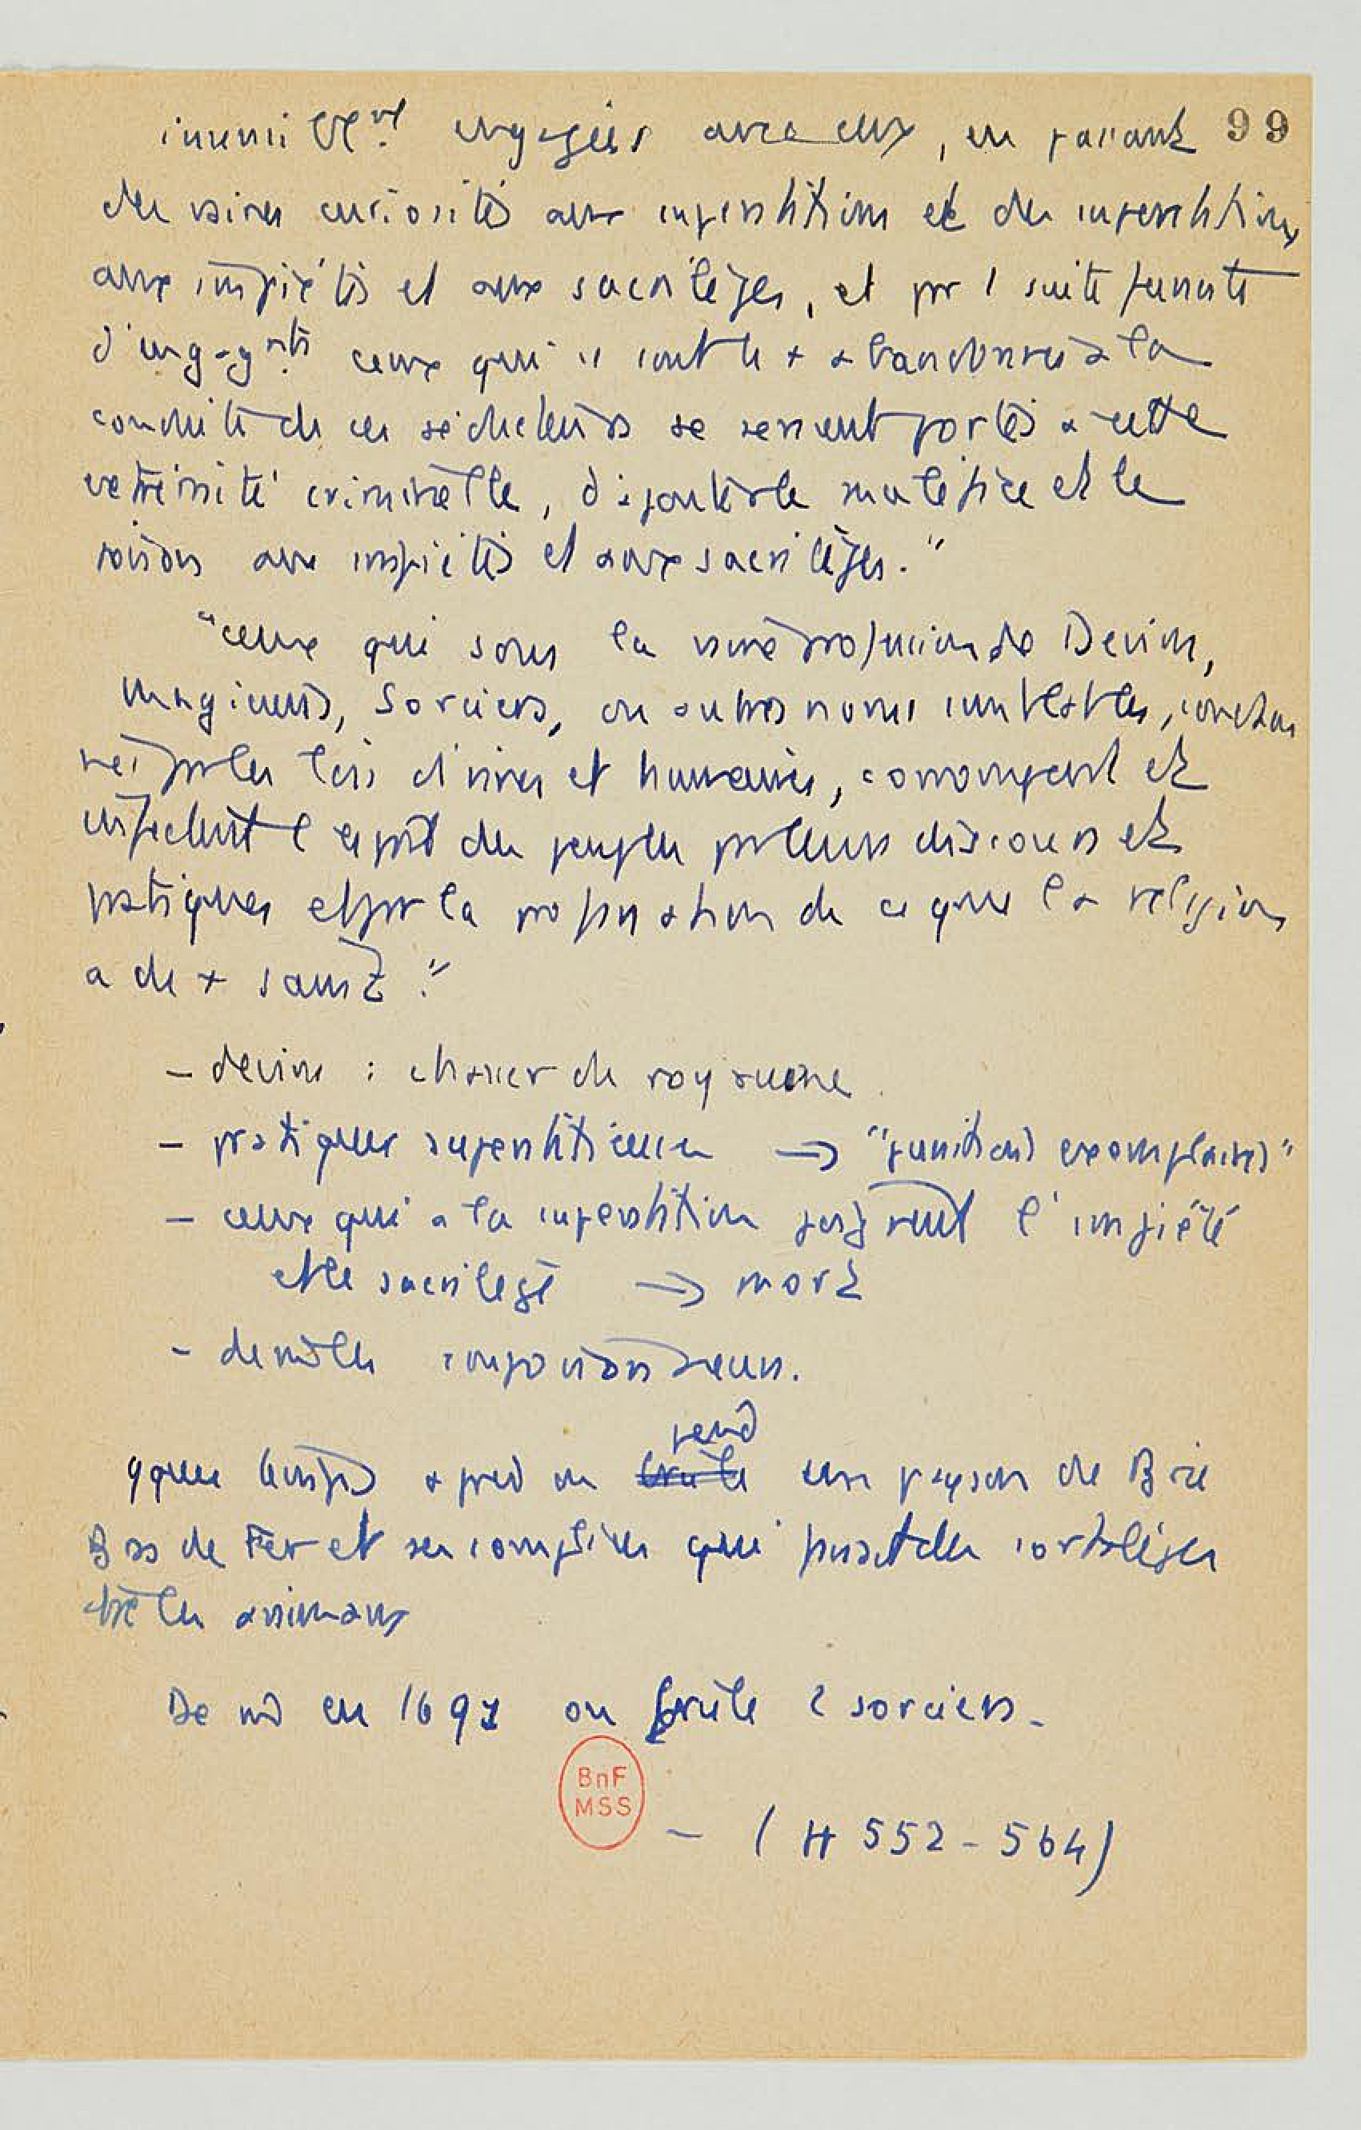 insensiblt engagées avec eux, en passant 99
des vaines curiosités aux superstitions et des superstitions
aux impiétés et aux sacrilèges, et pr 1 suite funeste
d'engagts ceux qui se sont le + abandonnés à la
conduite de ces séducteurs se seraient portés à cette
extrémité criminelle, d'ajouter le maléfice et le
poison aux impiétés et aux sacrilèges."
"ceux qui sous la vaine profession de Devins,
Magiciens, Sorciers, ou autres noms semblables, condam
nés par les lois divines et humaines, corrompent et
infectent l'esprit des peuples par leurs discours et
pratiques et par la profanation de ce que la religion
a de + saint."
- devins : chasser du royaume
- pratiques superstitieuses → "punitions exemplaires"
- ceux qui à la superstition joignent l'impiété
et le sacrilège → mort
- de même les empoisonneurs.
qques temps après on brûle pend un paysan de Brie
Bras de Fer et ses complices qui par des sortilèges
tue les animaux
De md en 1691 on brûle 2 sorciers.
BnF
MSS
- (H 552-564)